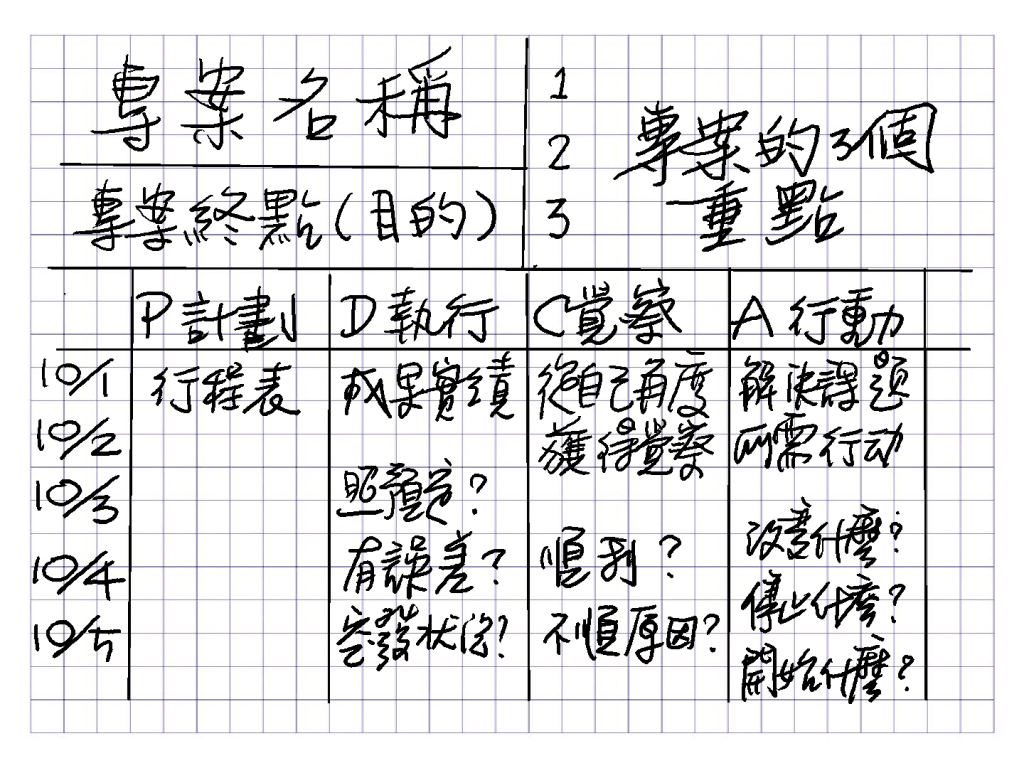 專案名稱
專案終點(目的)
1
2
3
專案的3個
重點
P計劃 D執行 C覺察 A行動
10/1 行程表 成果實績 從自己角度 解決課題
10/2 獲得覺察 所需行动
10/3 照預定? 改善什麼?
10/4 有誤差? 順利? 停止什麼?
10/5 突發狀況? 不順原因? 開始什麼?